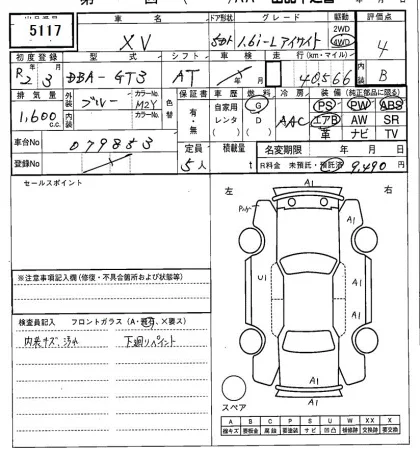 5117
車名 ドア形状 グレード 駆動 評価点
XV 5ドア 1.6i-L アイサイト 2WD 4WD 4
初度登録 型式 シフト 車検 走行(km・マイル) 内装
R2年3月 DBA-GT3 AT 年 月 40,566 B
排気量 外装 ブルー カラーNo. M2Y 色替 保証書 車歴 燃料 冷房 装備(純正部品に限る)
1,600 c.c. 内装 カラーNo. 有・無 自家用 レンタ ( ) G D ( ) AAC PS PW ABS
エアB AW SR
革 ナビ TV
車台No 079853 定員 5人 積載量 t 名変期限 年 月 日
登録No R料金 未預託・預託済 9,490円
セールスポイント
左 右
A1
A1
A1
U1
A1
A1
A1
※注意事項記入欄(修復・不具合箇所および状態等)
検査員記入 フロントガラス(A・飛石、×要ス)
内装キズ、汚れ 下廻りペイント
スペア
A B C P S U W X XX
微キズ 要板金 腐蝕 要塗装 サビ 凹凸 補修跡 交換跡 要交換